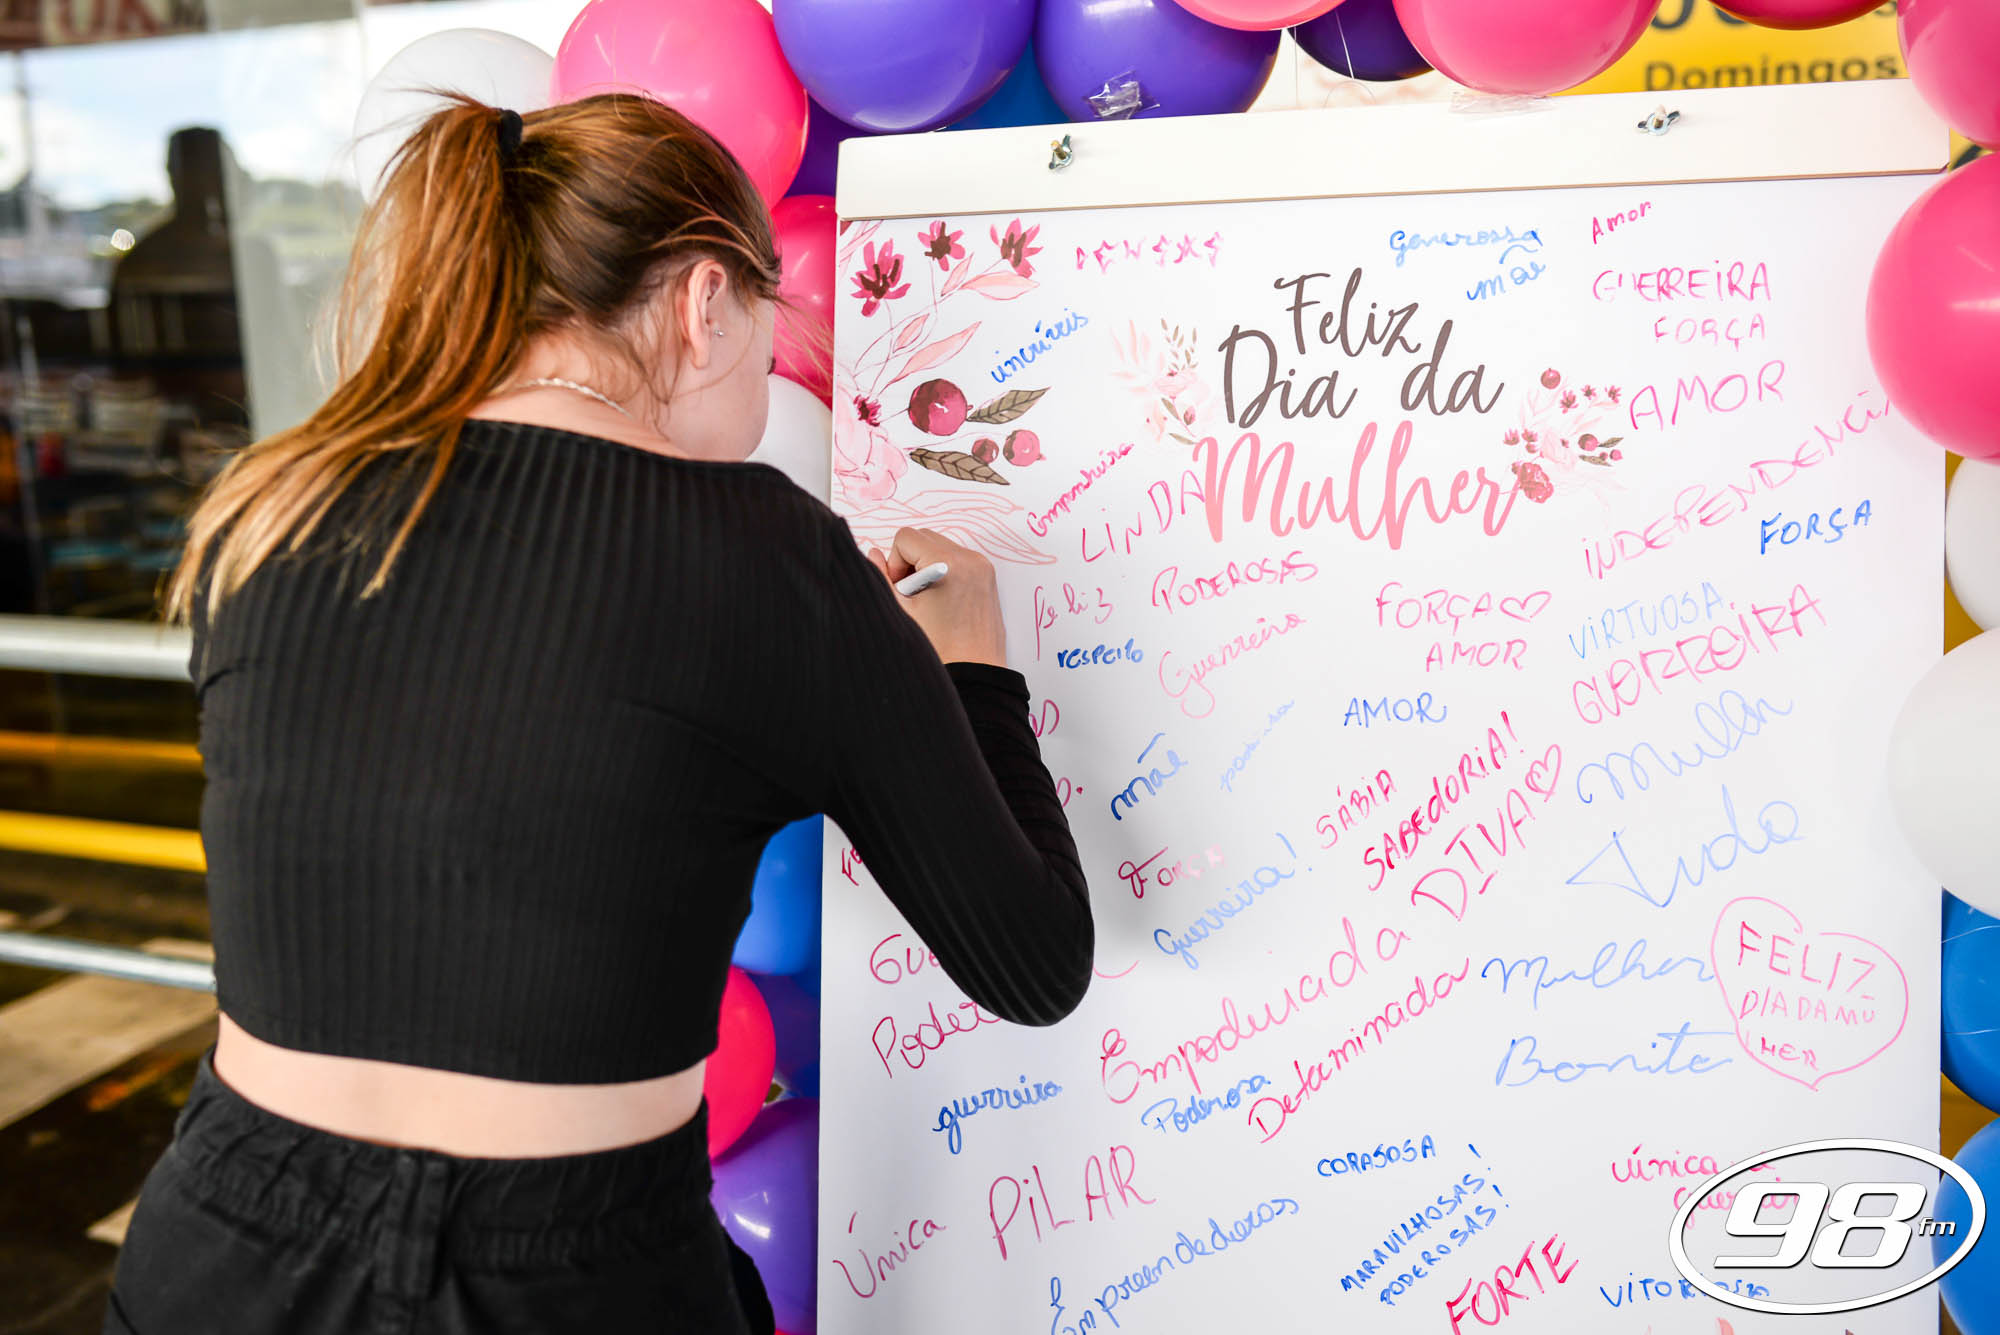 Domingos
Amor
Generossa
mãe
GUERREIRA
FORÇA
Feliz
Dia da
Mulher
AMOR
Companheira
LINDA
INDEPENDENCI
FORÇA
feliz
PODEROSAS
respeito
Guerreira
FORÇA
AMOR
VIRTUOSA
GUERREIRA
AMOR
mãe
SÁBIA
SABEDORIA!
DIVA
Mulher
Tudo
FORÇA
Guerreira!
Empoderada
Determinada
Mulher
Bonita
FELIZ
DIA DA MU
LHER
Poder
guerreira
Poderosa
Única
PILAR
Empreendedoras
CORAJOSA
MARAVILHOSAS!
PODEROSAS!
FORTE
única
98 fm